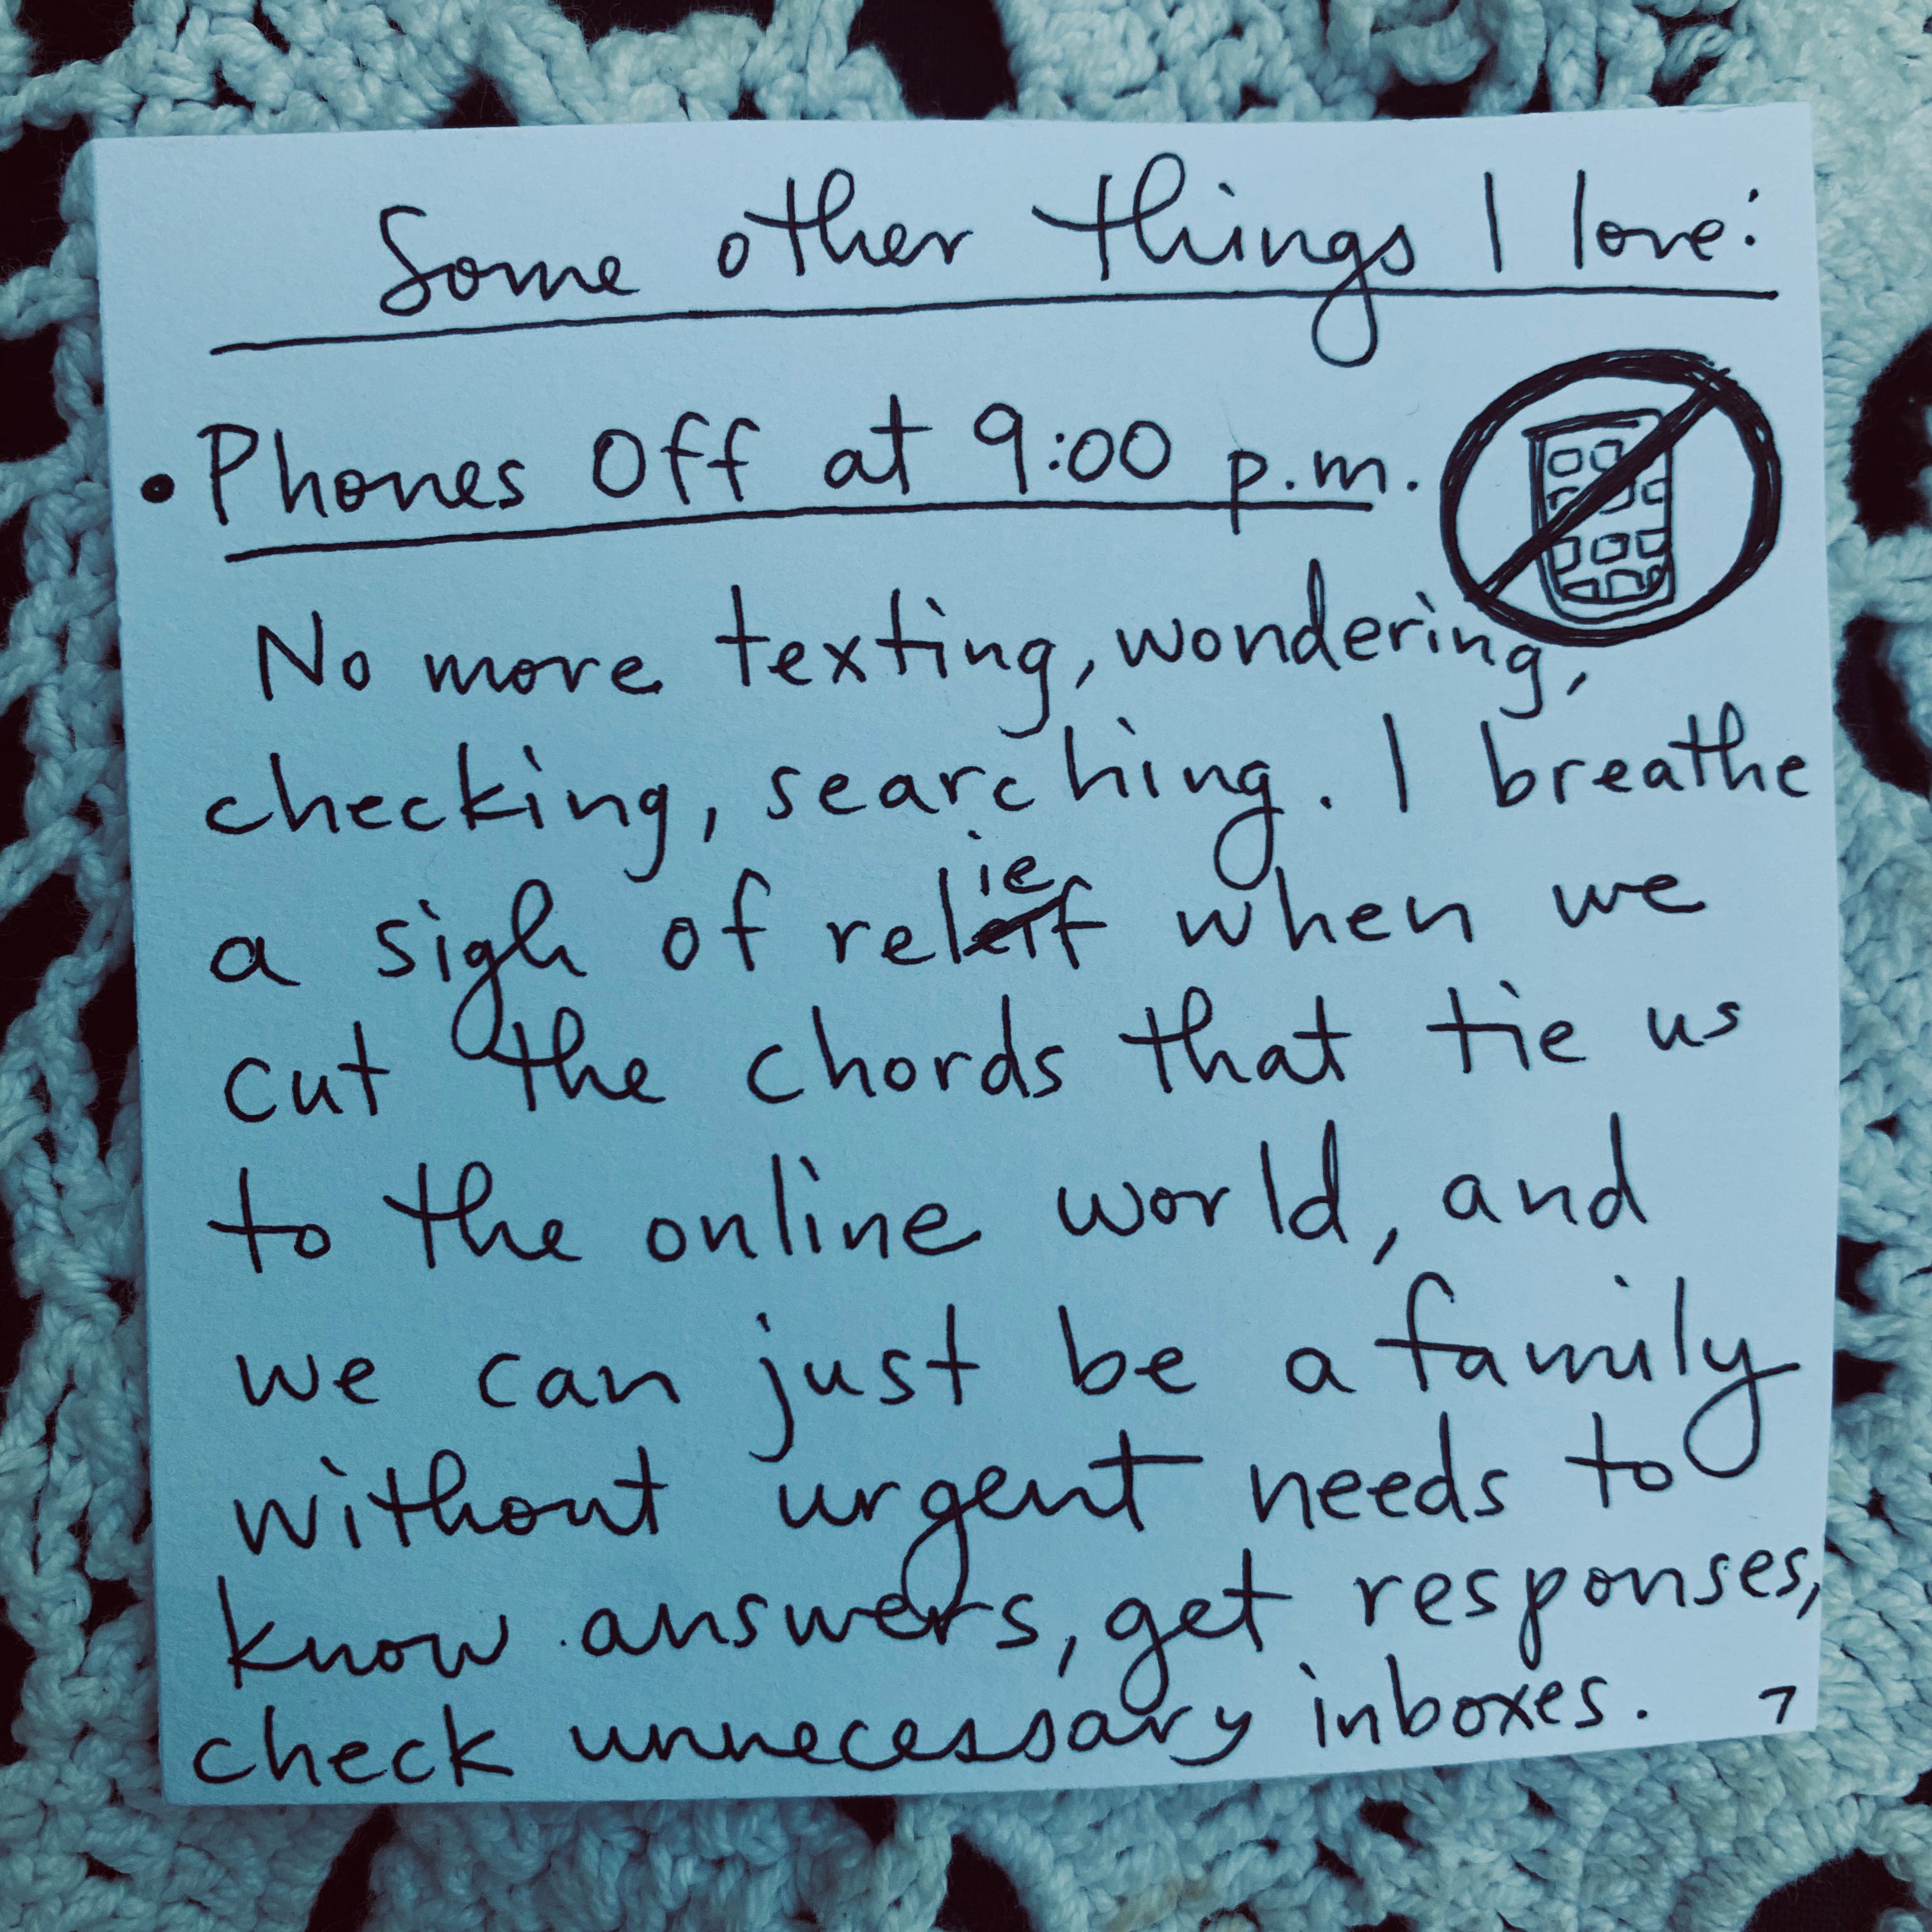 Some other things I love:
• Phones Off at 9:00 p.m.
No more texting, wondering,
checking, searching. I breathe
a sigh of relief when we
cut the chords that tie us
to the online world, and
we can just be a family
without urgent needs to
know answers, get responses,
check unnecessary inboxes. 7